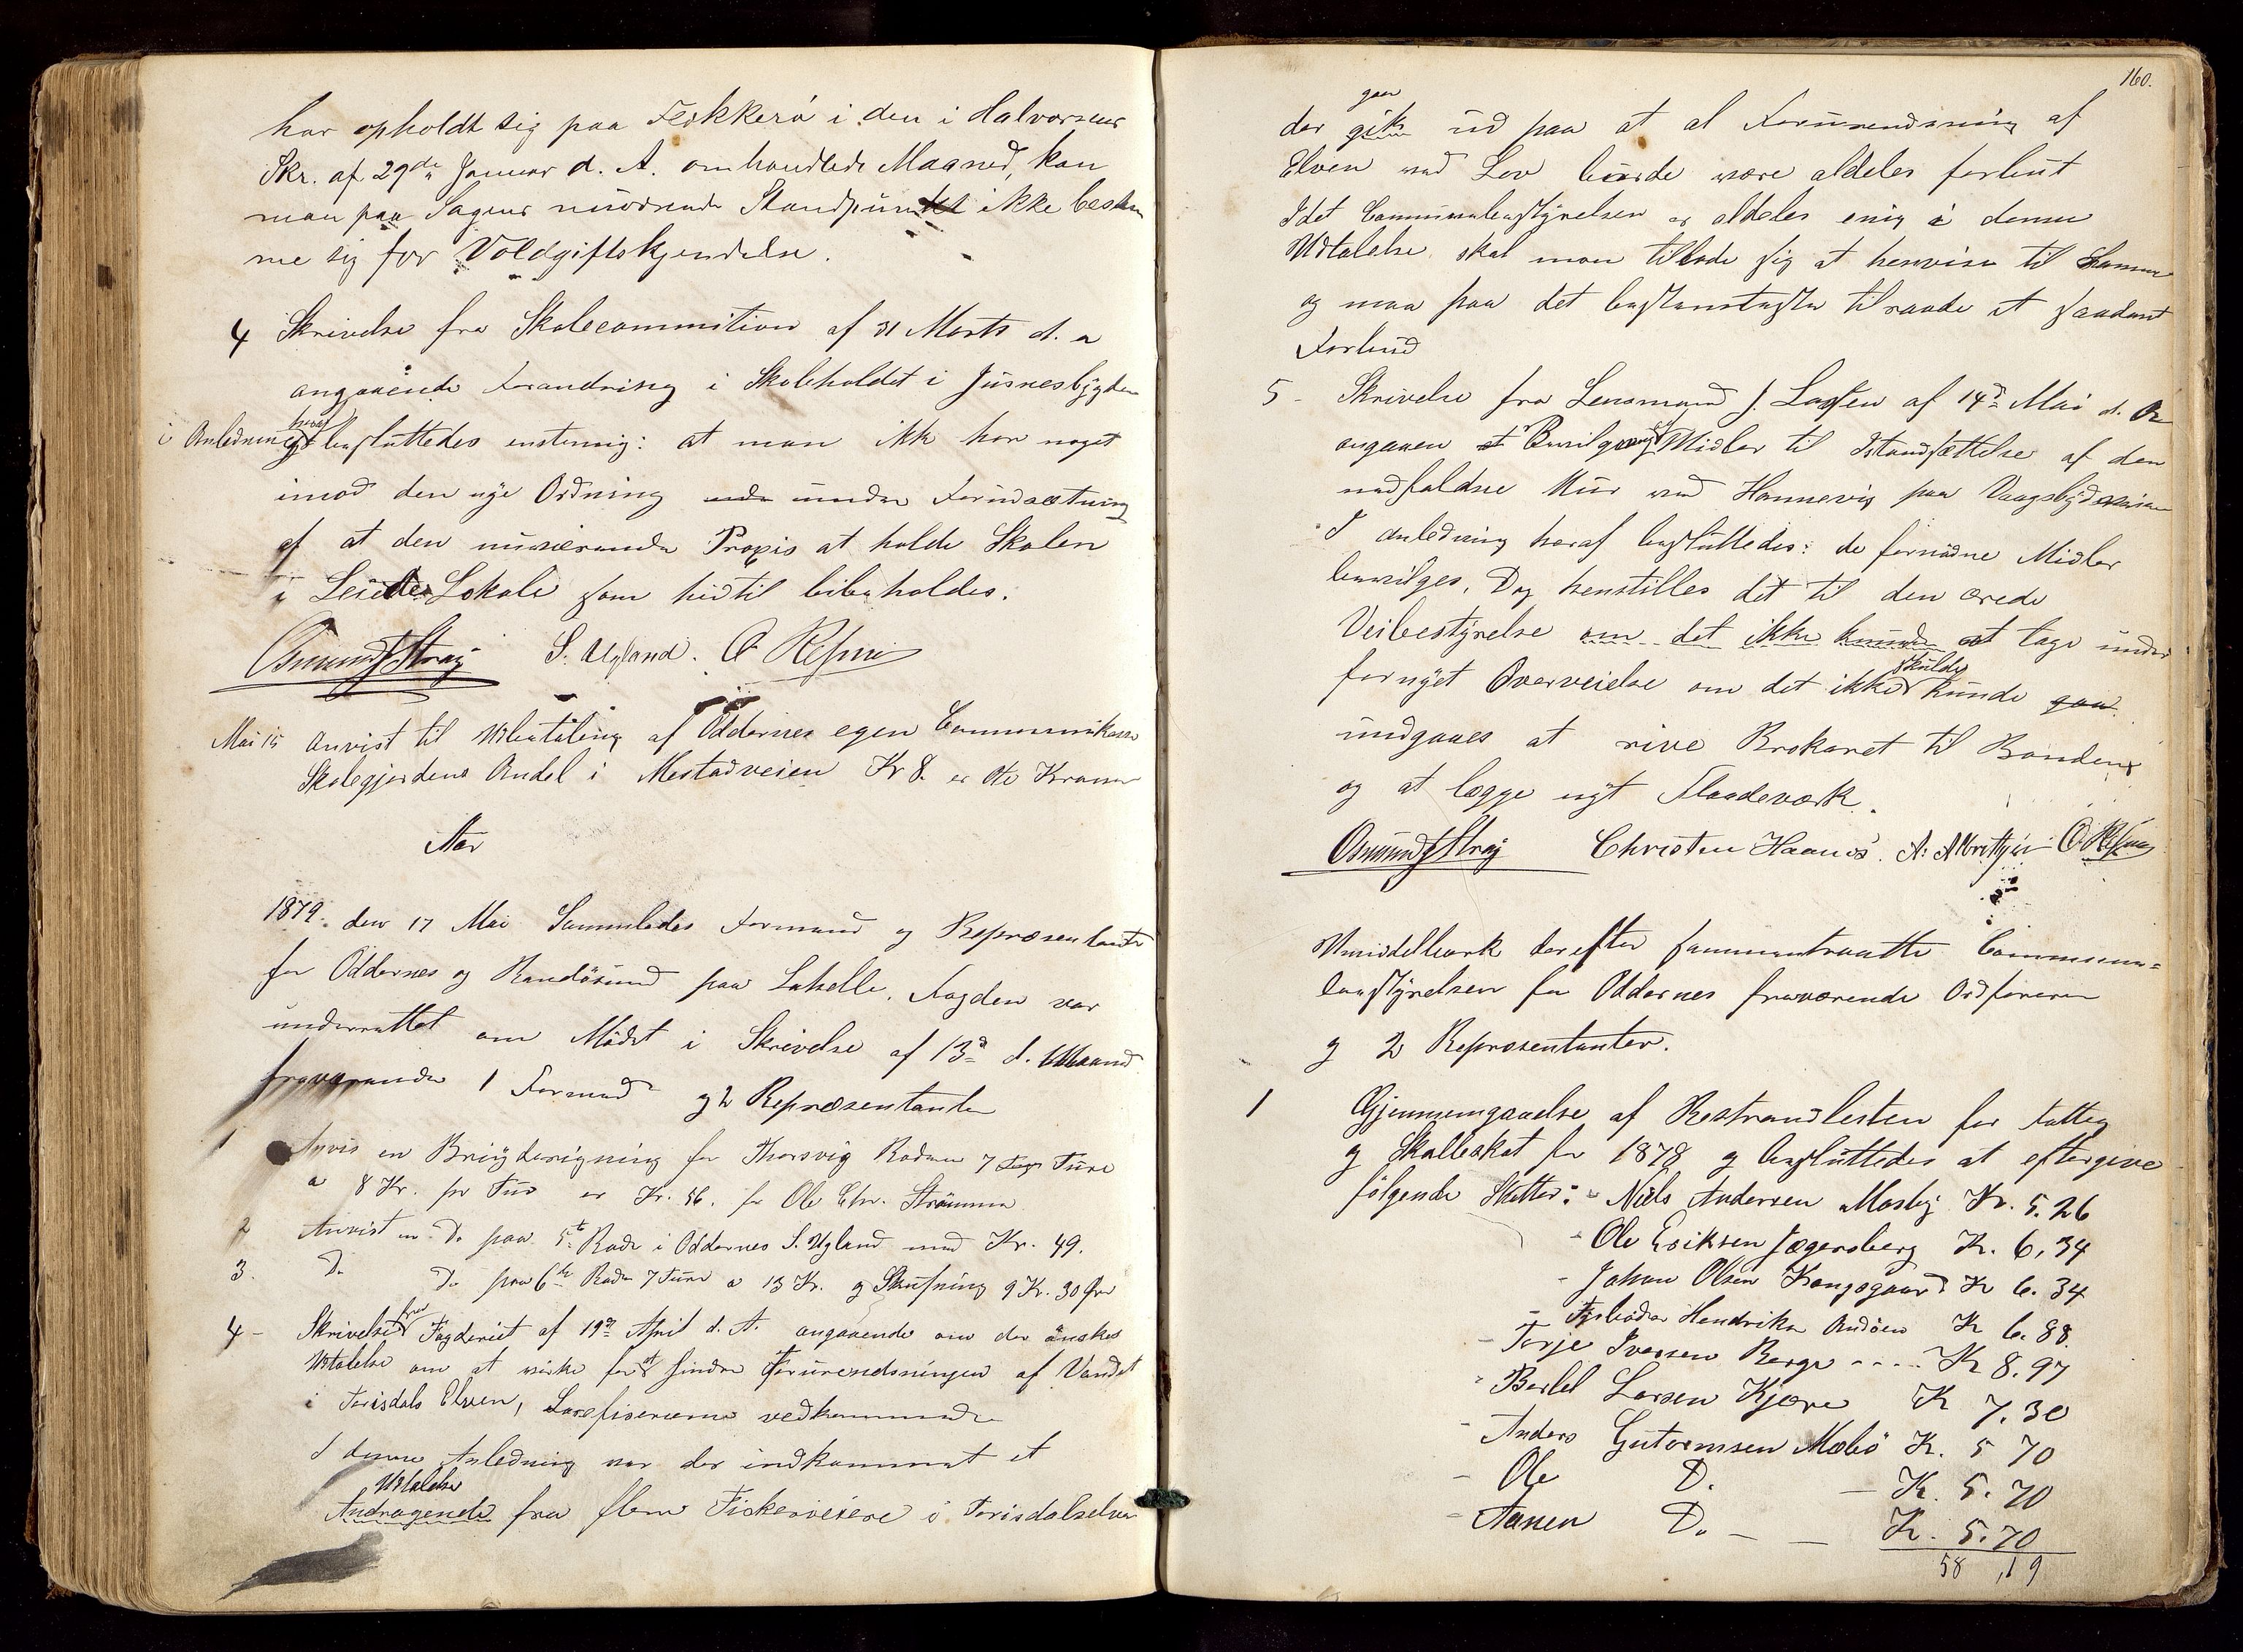 har opholdt sig paa Flekkerö i den i Halvorsens
Skr. af 29de Januar d. A. omhandlede Maaned, kan
man paa Sagens nuværende Standpunkt ikke bestem
me sig for Voldgiftskjendelse.
4 Skrivelse fra Skolecommition af 31 Marts d. a
angaaende Forandring i Skoleholdet i Jusnesbygden
i Anledning heraf besluttedes enstemig: at man ikke har noget
imod den nye Ordning under Forudsætning
af at den nuværende Praxis at holde Skolen
i Leiede Lokale som hidtil bibeholdes.
Osmund Stray S. Ugland. O Refsnes
Mai 15 Anvist til Udbetaling af Oddernes egen Communekasse
Skolegjordens Andel i Mestadveien Kr 8. er Otte Kroner
Stray
1879. den 17 Mai Samledes Formænd og Repræsentanter
for Oddernes og Randösund paa Lahelle. Fogden var
underrettet om Mödet i Skrivelse af 13d d. Maaned
fraværende 1 Formand og 2 Repræsentanter
1 Anvis en Brüyderigning for Thorsvig Roden 7 Ture
a 8 Kr. pr Tur er Kr. 56. for Ole Chr. Strömme
2 Anvist en Do paa 5te Rode i Oddernes S. Ugland med Kr. 49.
3. Do Do paa 6te Rode 7 Ture a 13 Kr. og Skufning 9 Kr. 30 Öre
4 - Skrivelse fra Fogderiet af 19de April d. A. angaaende om der önskes
Udtalelse om at virke for at hindre Forurensningen af Vandet
i Torisdals Elven, Laxefiserierne vedkommende
I denne Anledning var der indkommet et
Udtalelse
Andragende fra flere Fiskerieiere i Torisdalselven
160.
gaar
der gik ud paa at al Forurensning af
Elven ved Lov burde være aldeles forbut
Idet Communebestyrelsen er aldeles enig i denne
Udtalelse skal man tillade sig at henvise til Samme
og maa paa det bestemteste tilraade et saadant
Forbud
5 - Skrivelse fra Lensmand J. Lassen af 14d Mai d. A
angaaen Bevilgning af Midler til Istandsættelse af den
nedfaldne Mur ved Hannevig paa Vaagsbydveien
I Anledning heraf besluttedes: de fornödne Midler
bevilges. Dog henstilles det til den ærede
Veibestyrelse om det ikke kunde at tage under
fornyet Overveielse om det ikke skulde kunde gaa
undgaaes at rive Brokaret til Bunden
og at lægge nyt Flaadeværk.
Osmund Stray Christen Haanes. O Refsnes
Umiddelbark derefter sammentraatte Commune=
bestyrelsen for Oddernes fraværende Ordföreren
og 2 Repræsentanter.
1 Gjennemgaaelse af Restranslesten for Fattig
og Skolleskat for 1878 og besluttedes at eftergive
fölgende Skatter: - Niels Andersen Mosby Kr. 5.26
- Ole Eriksen Jægersberg Kr. 6,34
- Johan Olsen Kongsgaard Kr 6.34
- Hendrik Andöen Kr 6.88.
- Torje Iversen Berge - - - - Kr 8.97
- Bertel Larsen Kjære Kr 7.30
- Anders Gutormsen Mæbö Kr. 5 70
- Ole D. - Kr. 5.70
- Aanen Do - - Kr. 5.70
58,19